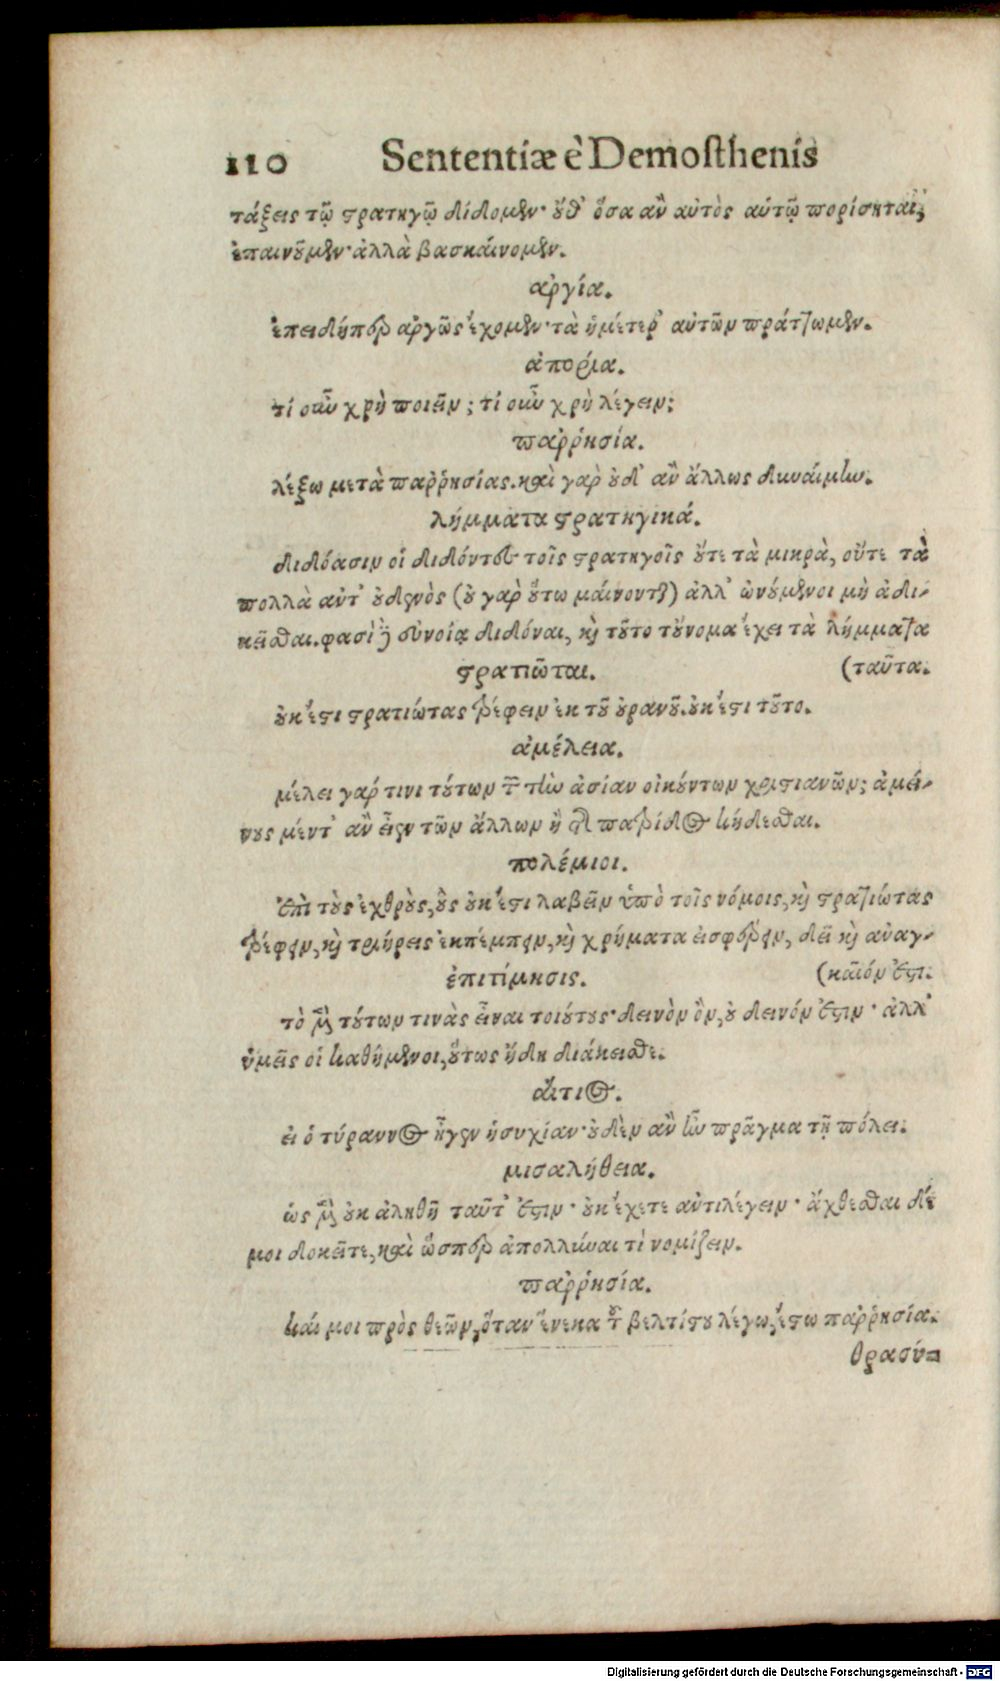 110 Sententiæ è Demosthenis
τάξεις τῷ στρατηγῷ δίδομεν· οὔθ' ὅσα ἂν αὐτὸς αὑτῷ πορίσηται,
ἐπαινοῦμεν· ἀλλὰ βασκαίνομεν.
αργία.
ἐπειδήπερ αργῶς ἔχομεν· τὰ ἡμέτερ' αὐτῶν πράττωμεν.
ἀπορία.
τί οὖν χρὴ ποιεῖν; τί οὖν χρὴ λέγειν;
παῤῥησία.
λέξω μετὰ παῤῥησίας. καὶ γαρ οὐδ' αν ἄλλως δυναίμην.
λήμματα στρατηγικά.
διδόασιν οἱ διδόντες τοῖς στρατηγοῖς οὔτε τὰ μικρὰ, οὔτε τὰ
πολλὰ αντ' οὐδενὸς (οὐ γαρ οὕτω μαίνονται) ἀλλ' ὠνούμενοι μὴ ἀδι-
κεῖσθαι. φασὶ δὲ εὐνοίᾳ διδόναι, καὶ τοῦτο τοὔνομα ἔχει τὰ λήμματα
στρατιῶται. (ταῦτα.
οὐκ ἔστι στρατιώτας τρέφειν ἐκ τοῦ οὐρανοῦ. οὐκ ἔστι τοῦτο.
ἀμέλεια.
μέλει γαρ τινι τούτων τῶν τὴν ἀσίαν οἰκούντων χριστιανῶν; ἀμεί-
νους μέντ' αν εἶεν τῶν ἄλλων ἢ τῆς πατρίδος κήδεσθαι.
πολέμιοι.
ἐπὶ τοὺς ἐχθροὺς, οὓς οὐκ ἔστι λαβεῖν ὑπὸ τοῖς νόμοις, καὶ στρατιώτας
τρέφειν, καὶ τριήρεις ἐκπέμπειν, καὶ χρήματα εἰσφέρειν, δεῖ καὶ αναγ-
ἐπιτίμησις. (καῖόν ἐστι.
τὸ μὲν τούτων τινὰς εἶναι τοιούτους· δεινὸν ὂν, οὐ δεινόν ἐστιν· ἀλλ'
ὑμεῖς οἱ καθήμενοι, οὕτως ἤδη διάκεισθε.
αἴτιος.
εἰ ὁ τύραννος ἦγεν ἡσυχίαν· οὐδὲν ἂν ἦν πρᾶγμα τῇ πόλει.
μισαλήθεια.
ὡς μὲν οὐκ ἀληθῆ ταῦτ' ἐστιν· οὐκ ἔχετε αντιλέγειν· ἄχθεσθαι δέ
μοι δοκεῖτε, καὶ ὥσπερ ἀπολλύναι τὶ νομίζειν.
παῤῥησία.
καί μοι πρὸς θεῶν, ὅταν ἕνεκα τοῦ βελτίστου λέγω, ἔστω παῤῥησία.
θρασύ-
Digitalisierung gefördert durch die Deutsche Forschungsgemeinschaft - DFG